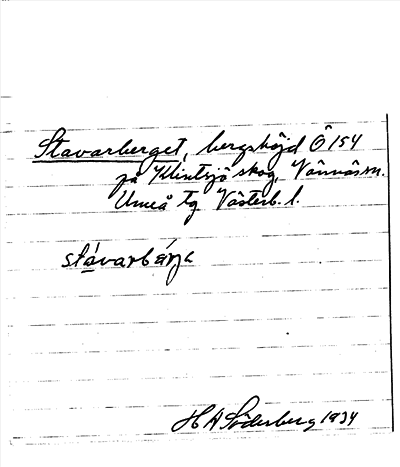 Stavarberget, bergshöjd Ö 154
på Klintsjö skog, Vännäs sn.
Umeå tg Västerb. l.
stávarbérja
H A Söderberg 1934